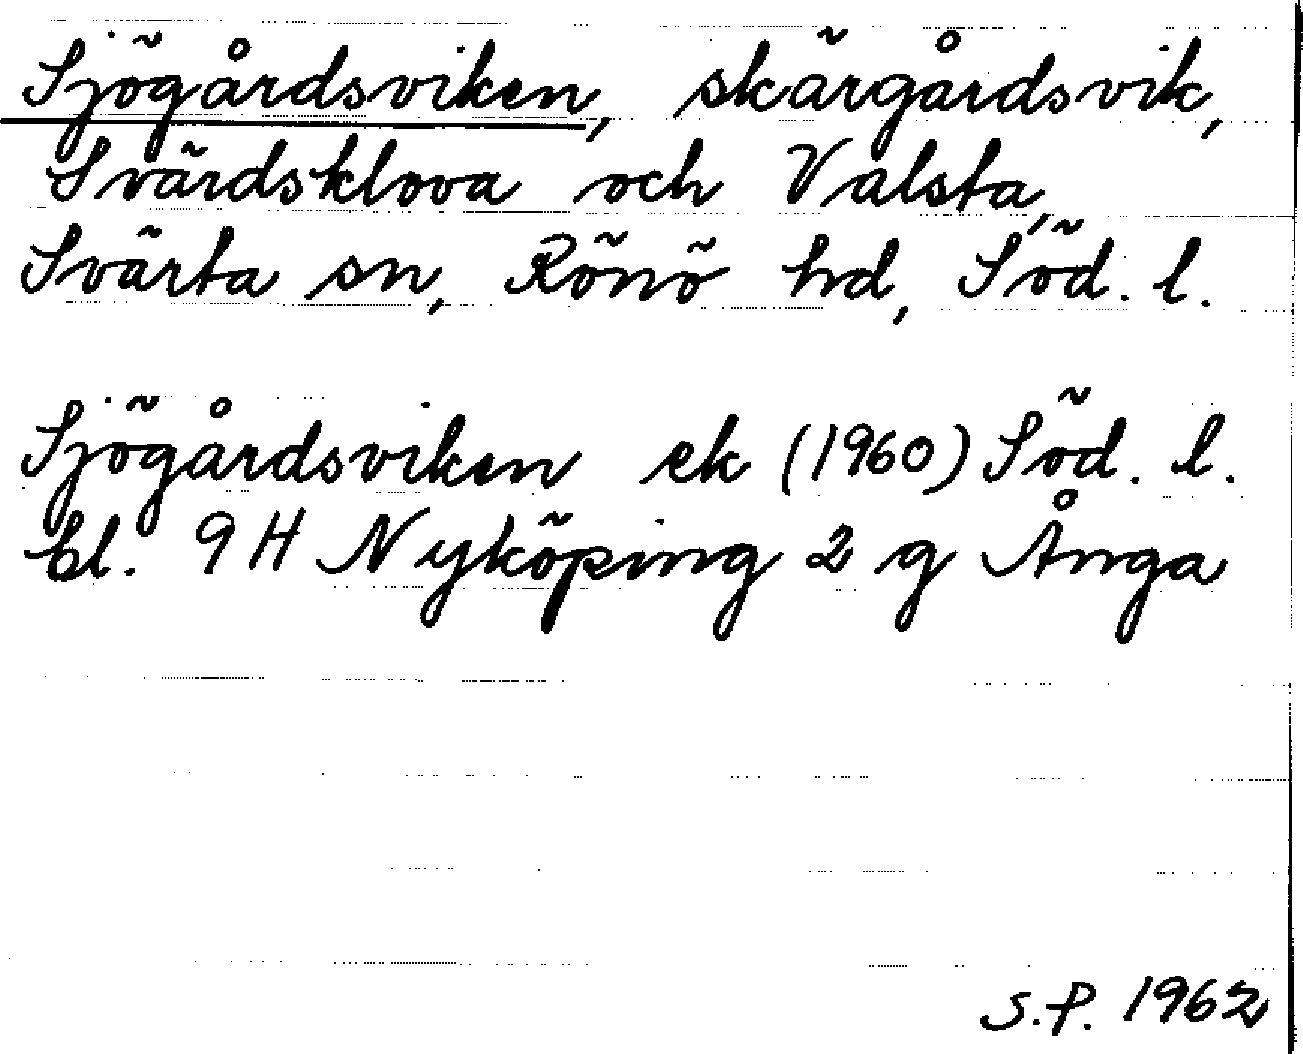 Sjögårdsviken, skärgårdsvik,
Svärdsklova och Valsta,
Svärta sn, Rönö hd, Söd. l.
Sjögårdsviken ek (1960) Söd. l.
bl. 9 H Nyköping 2 g Ånga
S.P. 1962